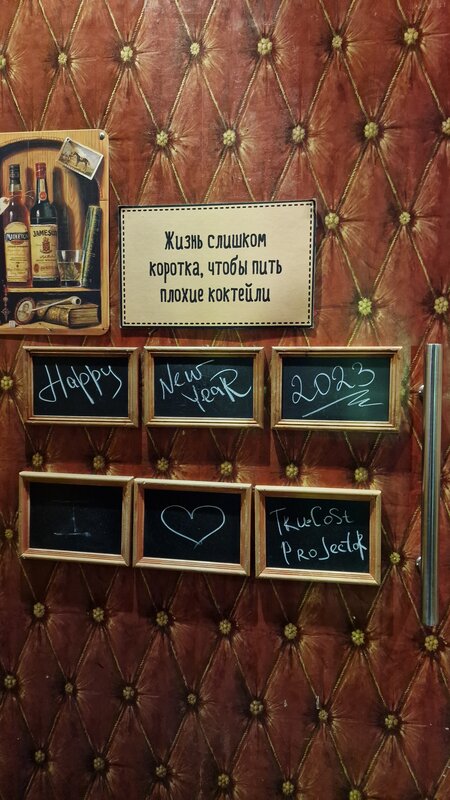 JAMESON
Жизнь слишком
коротка, чтобы пить
плохие коктейли
Happy
New
YeaR
2023
I
TRu:CoSt
PRoJectoR